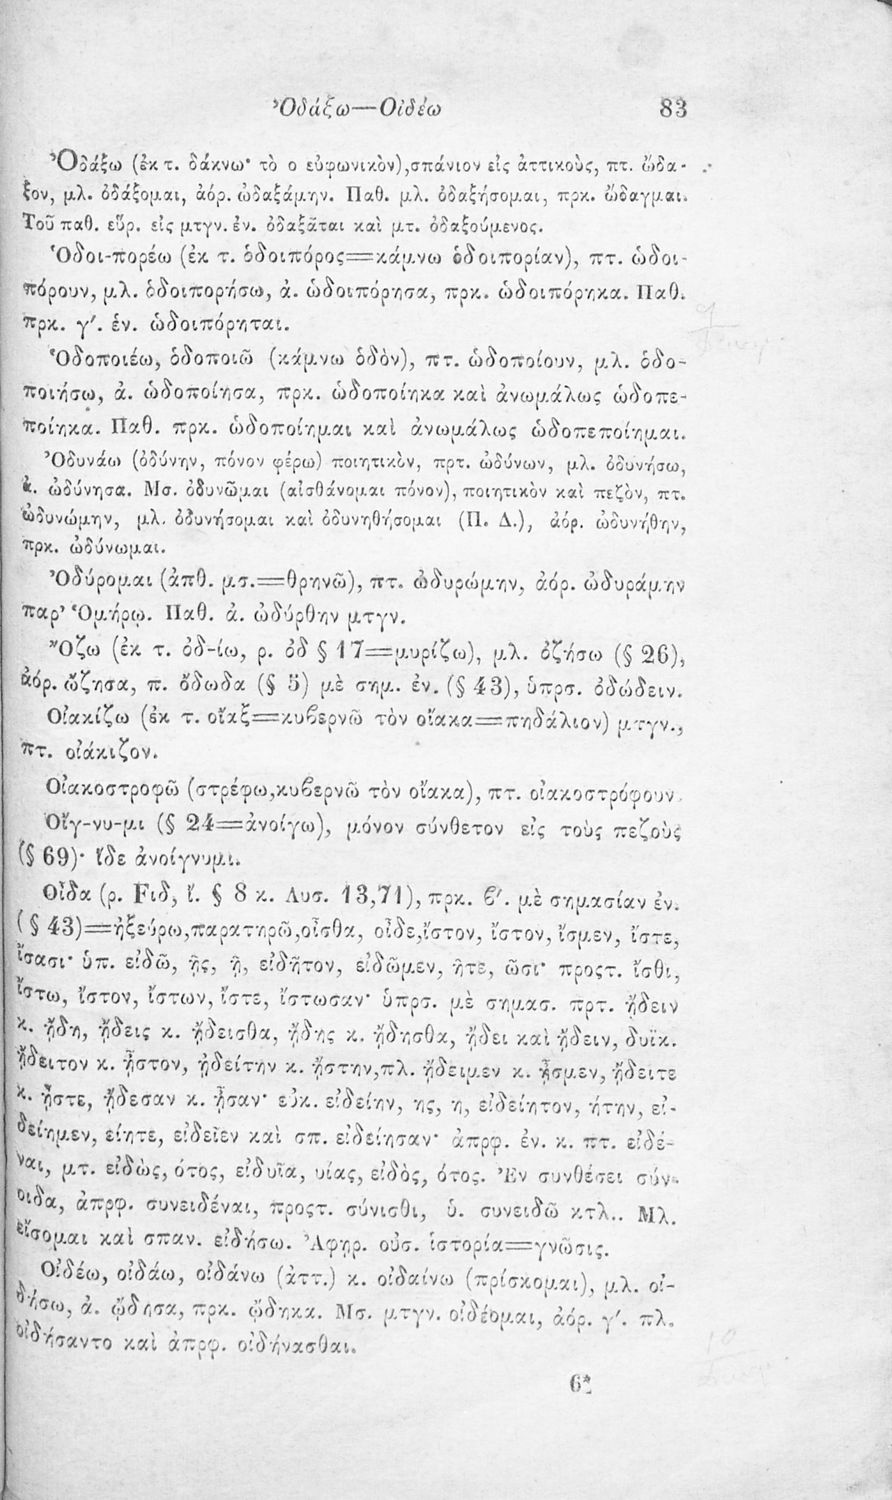 Ὀδάξω—Οἰδέω 83
Ὀδάξω (ἐκ τ. δάκνω· τὸ ο εὐφωνικὸν),σπάνιον εἰς ἀττικοὺς, πτ. ὤδα-
ξον, μλ. ὀδάξομαι, ἀόρ. ὠδαξάμην. Παθ. μλ. ὀδαξήσομαι, πρκ. ὤδαγμαι.
Τοῦ παθ. εὕρ. εἰς μτγν. ἐν. ὀδαξᾶται καὶ μτ. ὀδαξούμενος.
Ὁδοι-πορέω (ἐκ τ. ὁδοιπόρος=κάμνω ὁδοιπορίαν), πτ. ὡδοι-
πόρουν, μλ. ὁδοιπορήσω, ἀ. ὡδοιπόρησα, πρκ. ὡδοιπόρηκα. Παθ.
πρκ. γ′. ἑν. ὡδοιπόρηται.
Ὁδοποιέω, ὁδοποιῶ (κάμνω ὁδὸν), πτ. ὡδοποίουν, μλ. ὁδο-
ποιήσω, ἀ. ὡδοποίησα, πρκ. ὡδοποίηκα καὶ ἀνωμάλως ὡδοπε-
ποίηκα. Παθ. πρκ. ὡδοποίημαι καὶ ἀνωμάλως ὡδοπεποίημαι.
Ὀδυνάω (ὀδύνην, πόνον φέρω) ποιητικὸν, πρτ. ὠδύνων, μλ. ὀδυνήσω,
ἀ. ὠδύνησα. Μσ. ὀδυνῶμαι (αἰσθάνομαι πόνον), ποιητικὸν καὶ πεζὸν, πτ.
ὠδυνώμην, μλ. ὀδυνήσομαι καὶ ὀδυνηθήσομαι (Π. Δ.), ἀόρ. ὠδυνήθην,
πρκ. ὠδύνωμαι.
Ὀδύρομαι (ἀπθ. μσ.=θρηνῶ), πτ. ὠδυρώμην, ἀόρ. ὠδυράμην
παρ' Ὁμήρῳ. Παθ. ἀ. ὠδύρθην μτγν.
Ὄζω (ἐκ τ. ὀδ-ίω, ρ. ὀδ § 17=μυρίζω), μλ. ὀζήσω (§ 26),
ἀόρ. ὤζησα, π. ὄδωδα (§ 5) μὲ σημ. ἐν. (§ 43), ὑπρσ. ὀδώδειν.
Οἰακίζω (ἐκ τ. οἴαξ=κυβερνῶ τὸν οἴακα=πηδάλιον) μτγν.,
πτ. οἰάκιζον.
Οἰακοστροφῶ (στρέφω,κυβερνῶ τὸν οἴακα), πτ. οἰακοστρόφουν.
Οἴγ-νυ-μι (§ 24=ἀνοίγω), μόνον σύνθετον εἰς τοὺς πεζοὺς
(§ 69)· ἴδε ἀνοίγνυμι.
Οἶδα (ρ. Fιδ, ἴ. § 8 κ. Λυσ. 13,71), πρκ. β′. μὲ σημασίαν ἐν.
(§ 43)=ἠξεύρω,παρατηρῶ,οἶσθα, οἶδε,ἴστον, ἴστον, ἴσμεν, ἴστε,
ἴσασι· ὑπ. εἰδῶ, ῇς, ῇ, εἰδῆτον, εἰδῶμεν, ῆτε, ῶσι· προςτ. ἴσθι,
ἴστω, ἴστον, ἴστων, ἴστε, ἴστωσαν· ὑπρσ. μὲ σημασ. πρτ. ᾔδειν
κ. ᾔδη, ᾔδεις κ. ᾔδεισθα, ᾔδης κ. ᾔδησθα, ᾔδει καὶ ᾔδειν, δυϊκ.
ᾔδειτον κ. ᾖστον, ᾐδείτην κ. ᾔστην,πλ. ᾔδειμεν κ. ᾖσμεν, ᾔδειτε
κ. ᾖστε, ᾔδεσαν κ. ᾖσαν· εὐκ. εἰδείην, ης, η, εἰδείητον, ήτην, εἰ-
δείημεν, είητε, εἰδεῖεν καὶ σπ. εἰδείησαν· ἀπρφ. ἐν. κ. πτ. εἰδέ-
ναι, μτ. εἰδὼς, ότος, εἰδυῖα, υίας, εἰδὸς, ότος. Ἐν συνθέσει σύν-
οιδα, ἀπρφ. συνειδέναι, προςτ. σύνισθι, ὑ. συνειδῶ κτλ.. Μλ.
εἴσομαι καὶ σπαν. εἰδήσω. Ἀφηρ. οὐσ. ἱστορία=γνῶσις.
Οἰδέω, οἰδάω, οἰδάνω (ἀττ.) κ. οἰδαίνω (πρίσκομαι), μλ. οἰ-
δήσω, ἀ. ᾤδησα, πρκ. ᾤδηκα. Μσ. μτγν. οἰδέομαι, ἀόρ. γ′. πλ.
οἰδήσαντο καὶ ἀπρφ. οἰδήνασθαι.
6*